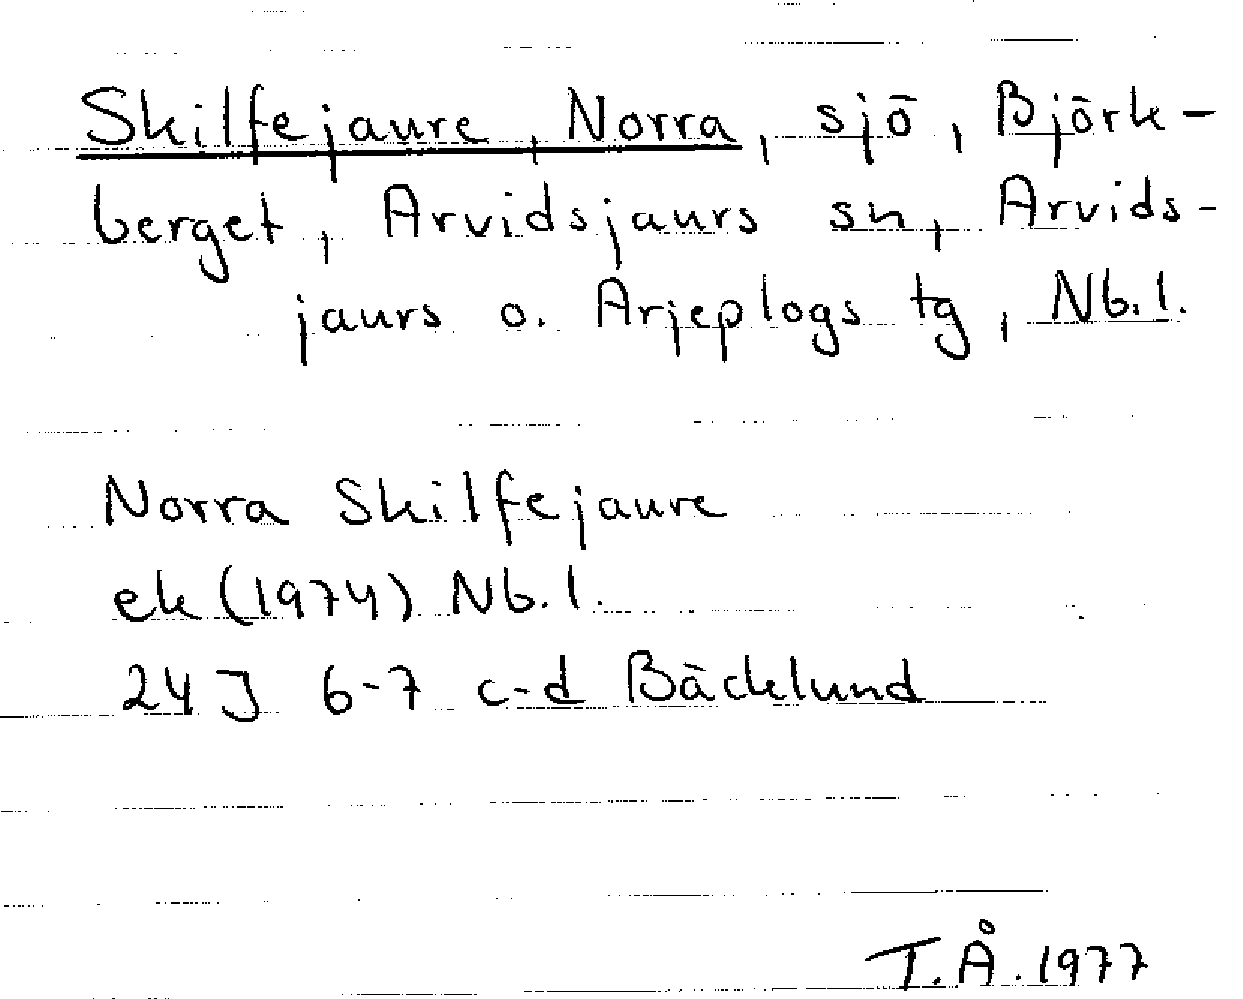 Skilfejaure, Norra, sjö, Björk-
berget, Arvidsjaurs sn, Arvids-
jaurs o. Arjeplogs tg, Nb.l.
Norra Skilfejaure
ek (1974) Nb.l.
24 J 6-7 c-d Bäcklund
T.Å. 1977